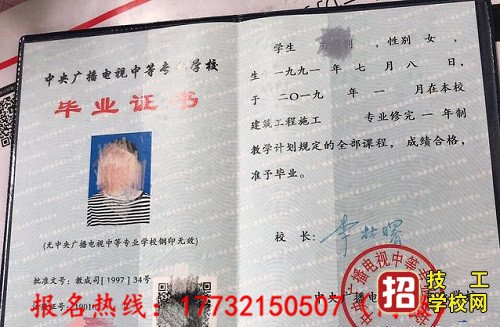 中央广播电视中等专业学校
毕业证书
(无中央广播电视中等专业学校钢印无效)
批准文号：教成司[1997]34号
学生 ，性别 女，
生一九九一年 七 月 八 日，
于 二〇一九 年 一 月在本校
建筑工程施工 专业修完 一 年制
教学计划规定的全部课程，成绩合格，
准予毕业。
校 长：李林曙
报名热线：17732150507
招
技 工
学校网